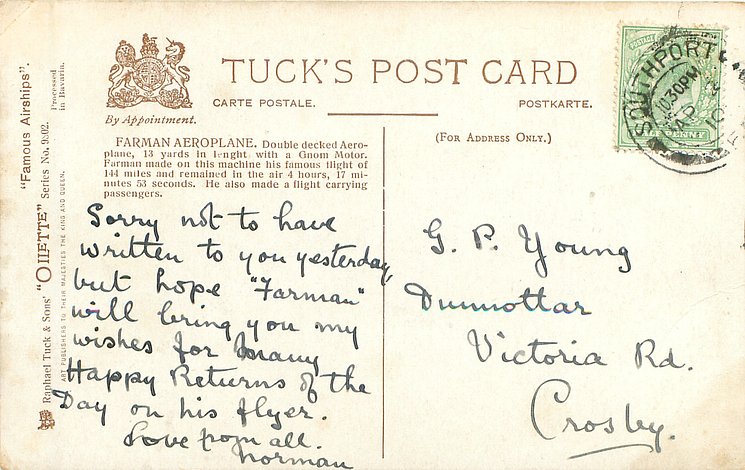 TUCK'S POST CARD
CARTE POSTALE.
POSTKARTE.
By Appointment.
(FOR ADDRESS ONLY.)
FARMAN AEROPLANE. Double decked Aero-
plane, 13 yards in lenght with a Gnom Motor.
Farman made on this machine his famous flight of
144 miles and remained in the air 4 hours, 17 mi-
nutes 53 seconds. He also made a flight carrying
passengers.
Sorry not to have
written to you yesterday,
but hope "Farman"
will bring you my
wishes for many
Happy Returns of the
Day on his flyer.
Love from all.
Norman
G. P. Young
Dunnottar
Victoria Rd.
Crosby.
SOUTHPORT
10.30PM
AP
10
"Famous Airships".
Processed
in Bavaria.
Raphael Tuck & Sons' "OILETTE" Series No. 9902.
ART PUBLISHERS TO THEIR MAJESTIES THE KING AND QUEEN.